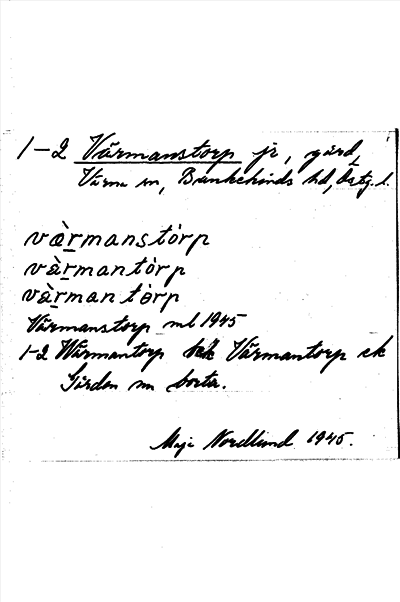 1-2 Värmanstorp jr, gård,
Värna sn, Bankekinds hd, Östg. l.
væ̀rmanstȯrp
và̀rmantȯrp
và̀rmantȯrp
Värmanstorp ml 1945
1-2 Wärmantorp Värmantorp ek
Gården nu borta.
Maja Nordlund 1945.